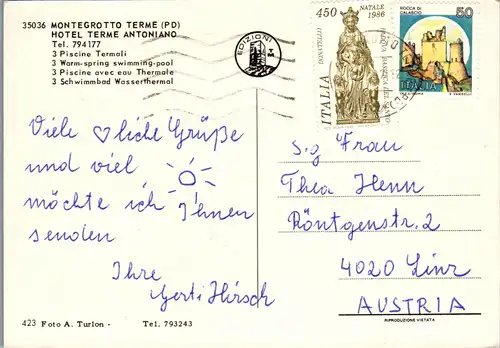 35036 MONTEGROTTO TERME (PD)
HOTEL TERME ANTONIANO
Tel. 794177
3 Piscine Termali
3 Warm-spring swimming-pool
3 Piscine avec eau Thermale
3 Schwimmbad Wasserthermal
EDIZIONI
TM
450
NATALE
1986
DONATELLO
ITALIA
PADOVA BASILICA DEL SANTO
ROCCA DI
CALASCIO
50
ITALIA
Viele ♡liche Grüße
und viel ☀
möchte ich Ihnen
senden
Ihre
Gerti Hirsch
S.g Frau
Thea Henn
Röntgenstr. 2
4020 Linz
AUSTRIA
423 Foto A. Turlon - Tel. 793243
RIPRODUZIONE VIETATA